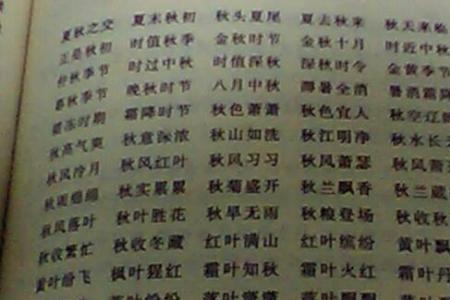 夏秋之交 夏末秋初 秋头夏尾 夏去秋来 秋天来临
正是秋初 时值秋季 金秋时节 金秋十月 时近中秋
仲秋季节 时过中秋 时值深秋 深秋时令 金黄季节
暮秋季节 晚秋时节 八月中秋 溽暑全消 暑消霜降
霜冻时期 霜降时节 秋色萧萧 秋色宜人 秋空辽
秋高气爽 秋意深浓 秋山如洗 秋江明净 秋水长
秋风冷月 秋风红叶 秋风习习 秋风萧瑟 秋风萧
秋雨绵绵 秋实累累 秋菊盛开 秋兰飘香 秋兰
秋风落叶 秋叶胜花 秋旱无雨 秋粮登场 秋收秋
秋收繁忙 秋收冬藏 红叶满山 红叶缤纷 黄叶飘
黄叶纷飞 枫叶猩红 霜叶知秋 霜叶火红 霜叶丹